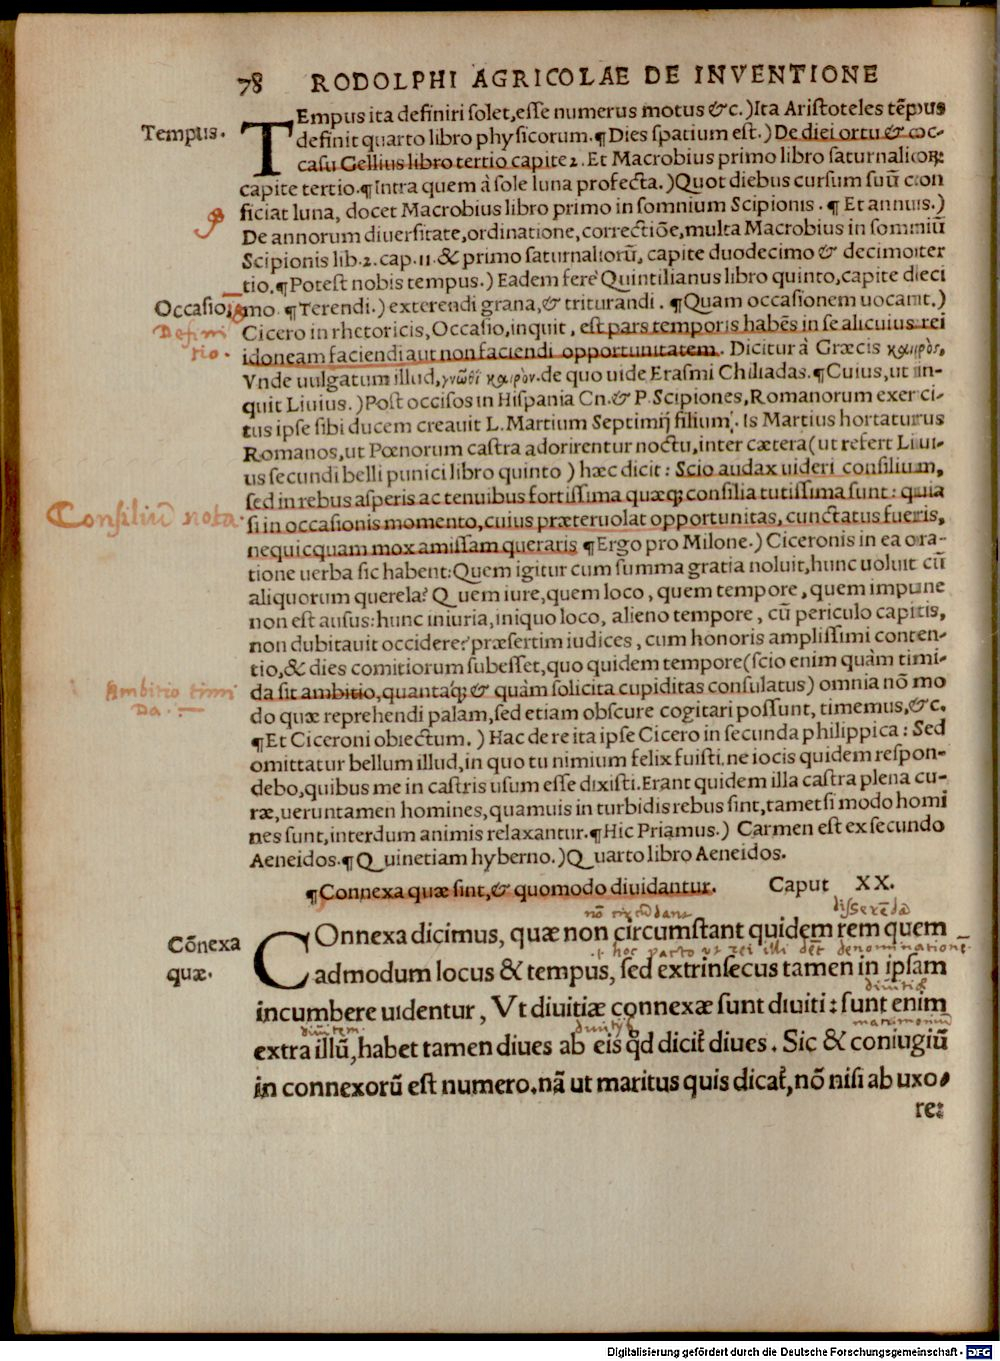 78 RODOLPHI AGRICOLAE DE INVENTIONE
Tempus.
TEmpus ita definiri solet, esse numerus motus &c.) Ita Aristoteles tēpus
definit quarto libro physicorum. ¶ Dies spatium est.) De diei ortu & oc-
casu Gellius libro tertio capite 2. Et Macrobius primo libro saturnalioꝝ
capite tertio. ¶ Intra quem à sole luna profecta.) Quot diebus cursum suū con
ficiat luna, docet Macrobius libro primo in somnium Scipionis. ¶ Et annuis.)
De annorum diuersitate, ordinatione, correctiōe, multa Macrobius in somniū
Scipionis lib. 2. cap. 11. & primo saturnaliorū, capite duodecimo & decimoter
tio. ¶ Potest nobis tempus.) Eadem ferè Quintilianus libro quinto, capite deci
Occasio.
mo. ¶ Terendi.) exterendi grana, & triturandi. ¶ Quam occasionem uocant.)
Defini
tio.
Cicero in rhetoricis, Occasio, inquit, est pars temporis habēs in se alicuius rei
idoneam faciendi aut non faciendi opportunitatem. Dicitur à Græcis καιρὸς,
Vnde uulgatum illud, γνῶθι καιρὸν. de quo uide Erasmi Chiliadas. ¶ Cuius, ut in-
quit Liuius.) Post occisos in Hispania Cn. & P. Scipiones, Romanorum exerci-
tus ipse sibi ducem creauit L. Martium Septimij filium. Is Martius hortaturus
Romanos, ut Pœnorum castra adorirentur noctu, inter cætera (ut refert Liui-
us secundi belli punici libro quinto) hæc dicit: Scio audax uideri consilium,
sed in rebus asperis ac tenuibus fortissima quæq; consilia tutissima sunt: quia
Consiliū nota.
si in occasionis momento, cuius præteruolat opportunitas, cunctatus fueris,
nequicquam mox amissam queraris ¶ Ergo pro Milone.) Ciceronis in ea ora-
tione uerba sic habent: Quem igitur cum summa gratia noluit, hunc uoluit cū
aliquorum querela? Quem iure, quem loco, quem tempore, quem impune
non est ausus: hunc iniuria, iniquo loco, alieno tempore, cū periculo capitis,
non dubitauit occidere? præsertim iudices, cum honoris amplissimi conten-
tio, & dies comitiorum subesset, quo quidem tempore (scio enim quàm timi-
Ambitio timi
da.
da sit ambitio, quantaq; & quàm solicita cupiditas consulatus) omnia nō mo
do quæ reprehendi palam, sed etiam obscure cogitari possunt, timemus, &c.
¶ Et Ciceroni obiectum.) Hac de re ita ipse Cicero in secunda philippica: Sed
omittatur bellum illud, in quo tu nimium felix fuisti. ne iocis quidem respon-
debo, quibus me in castris usum esse dixisti. Erant quidem illa castra plena cu-
ræ, ueruntamen homines, quamuis in turbidis rebus sint, tametsi modo homi
nes sunt, interdum animis relaxantur. ¶ Hic Priamus.) Carmen est ex secundo
Aeneidos. ¶ Quinetiam hyberno.) Quarto libro Aeneidos.
¶ Connexa quæ sint, & quomodo diuidantur. Caput XX.
nō
disserēda
Cōnexa
quæ.
COnnexa dicimus, quæ non circumstant quidem rem quem
hoc pacto ut rei illi det denominatione
admodum locus & tempus, sed extrinsecus tamen in ipsam
incumbere uidentur, Vt diuitiæ connexæ sunt diuiti: sunt enim
diuitē
matrimoniū
extra illū, habet tamen diues ab eis qd dicit̃ diues. Sic & coniugiū
in connexorū est numero. nā ut maritus quis dicat̃, nō nisi ab uxo-
re:
Digitalisierung gefördert durch die Deutsche Forschungsgemeinschaft - DFG